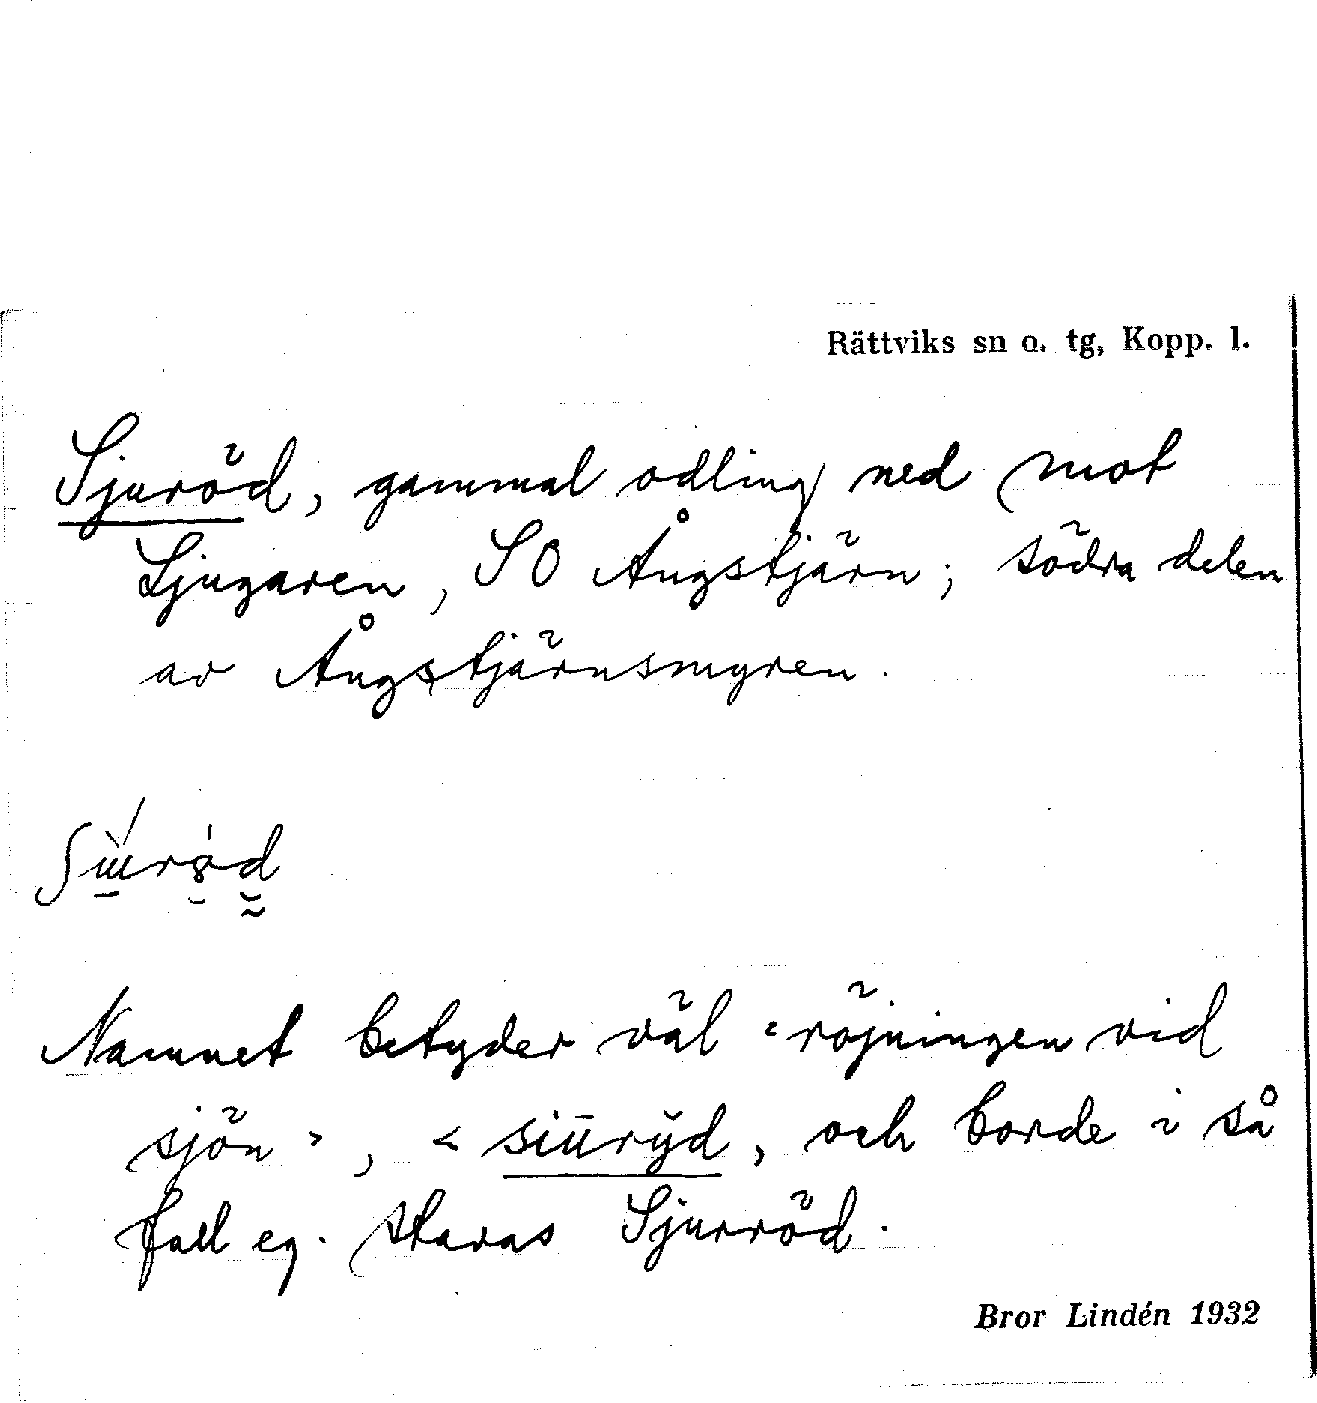 Rättviks sn o. tg, Kopp. l.
Sjuröd, gammal odling ned mot
Ljugaren, SO Ångstjärn; södra delen
av Ångstjärnsmyren.
Namnet betyder väl 'röjningen vid
sjön', < siūrȳd, och borde i så
fall eg. stavas Sjurröd.
Bror Lindén 1932